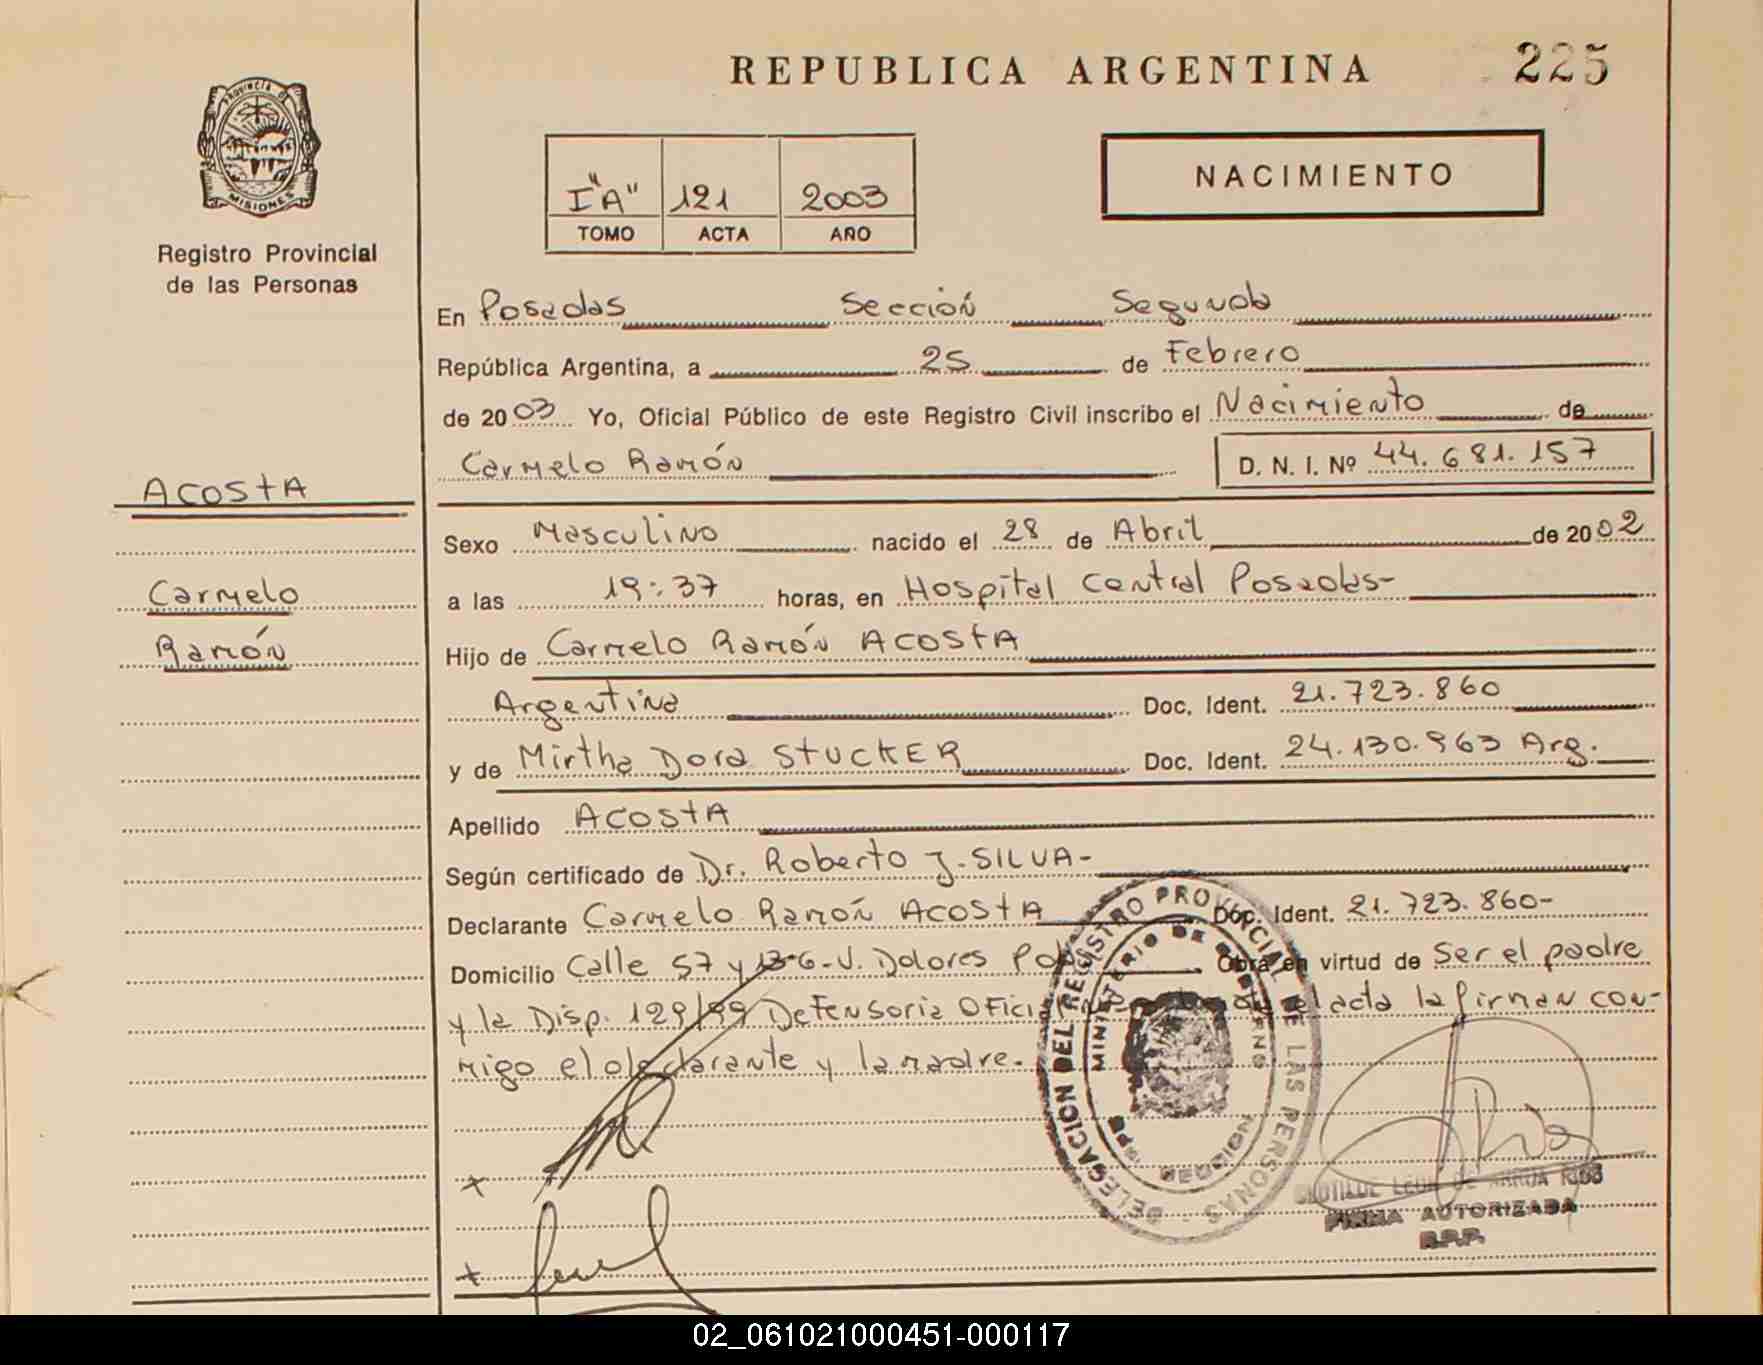 REPUBLICA ARGENTINA
225
PROVINCIA DE
MISIONES
Registro Provincial
de las Personas
I "A" 121 2003
TOMO ACTA AÑO
NACIMIENTO
En Posadas Sección Segunda
República Argentina, a 25 de Febrero
de 2003 Yo, Oficial Público de este Registro Civil inscribo el Nacimiento de
Carmelo Ramón D. N. I. Nº 44.681.157
ACOSTA
Carmelo
Ramón
Sexo Masculino nacido el 28 de Abril de 2002
a las 19:37 horas, en Hospital Central Posadas-
Hijo de Carmelo Ramón ACOSTA
Argentina Doc. Ident. 21.723.860
y de Mirtha Dora STUCKER Doc. Ident. 24.130.963 Arg.
Apellido ACOSTA
Según certificado de Dr. Roberto J. SILVA-
Declarante Carmelo Ramón ACOSTA Doc. Ident. 21.723.860-
Domicilio Calle 57 y 136-V. Dolores Obra en virtud de Ser el padre
y la Disp. 129/99 Defensoria acta la firman con-
migo el declarante y la madre.
DELEGACION DEL REGISTRO PROVINCIAL DE LAS PERSONAS
MINISTERIO DE GOBIERNO
FIRMA AUTORIZADA
R.P.P.
02_061021000451-000117